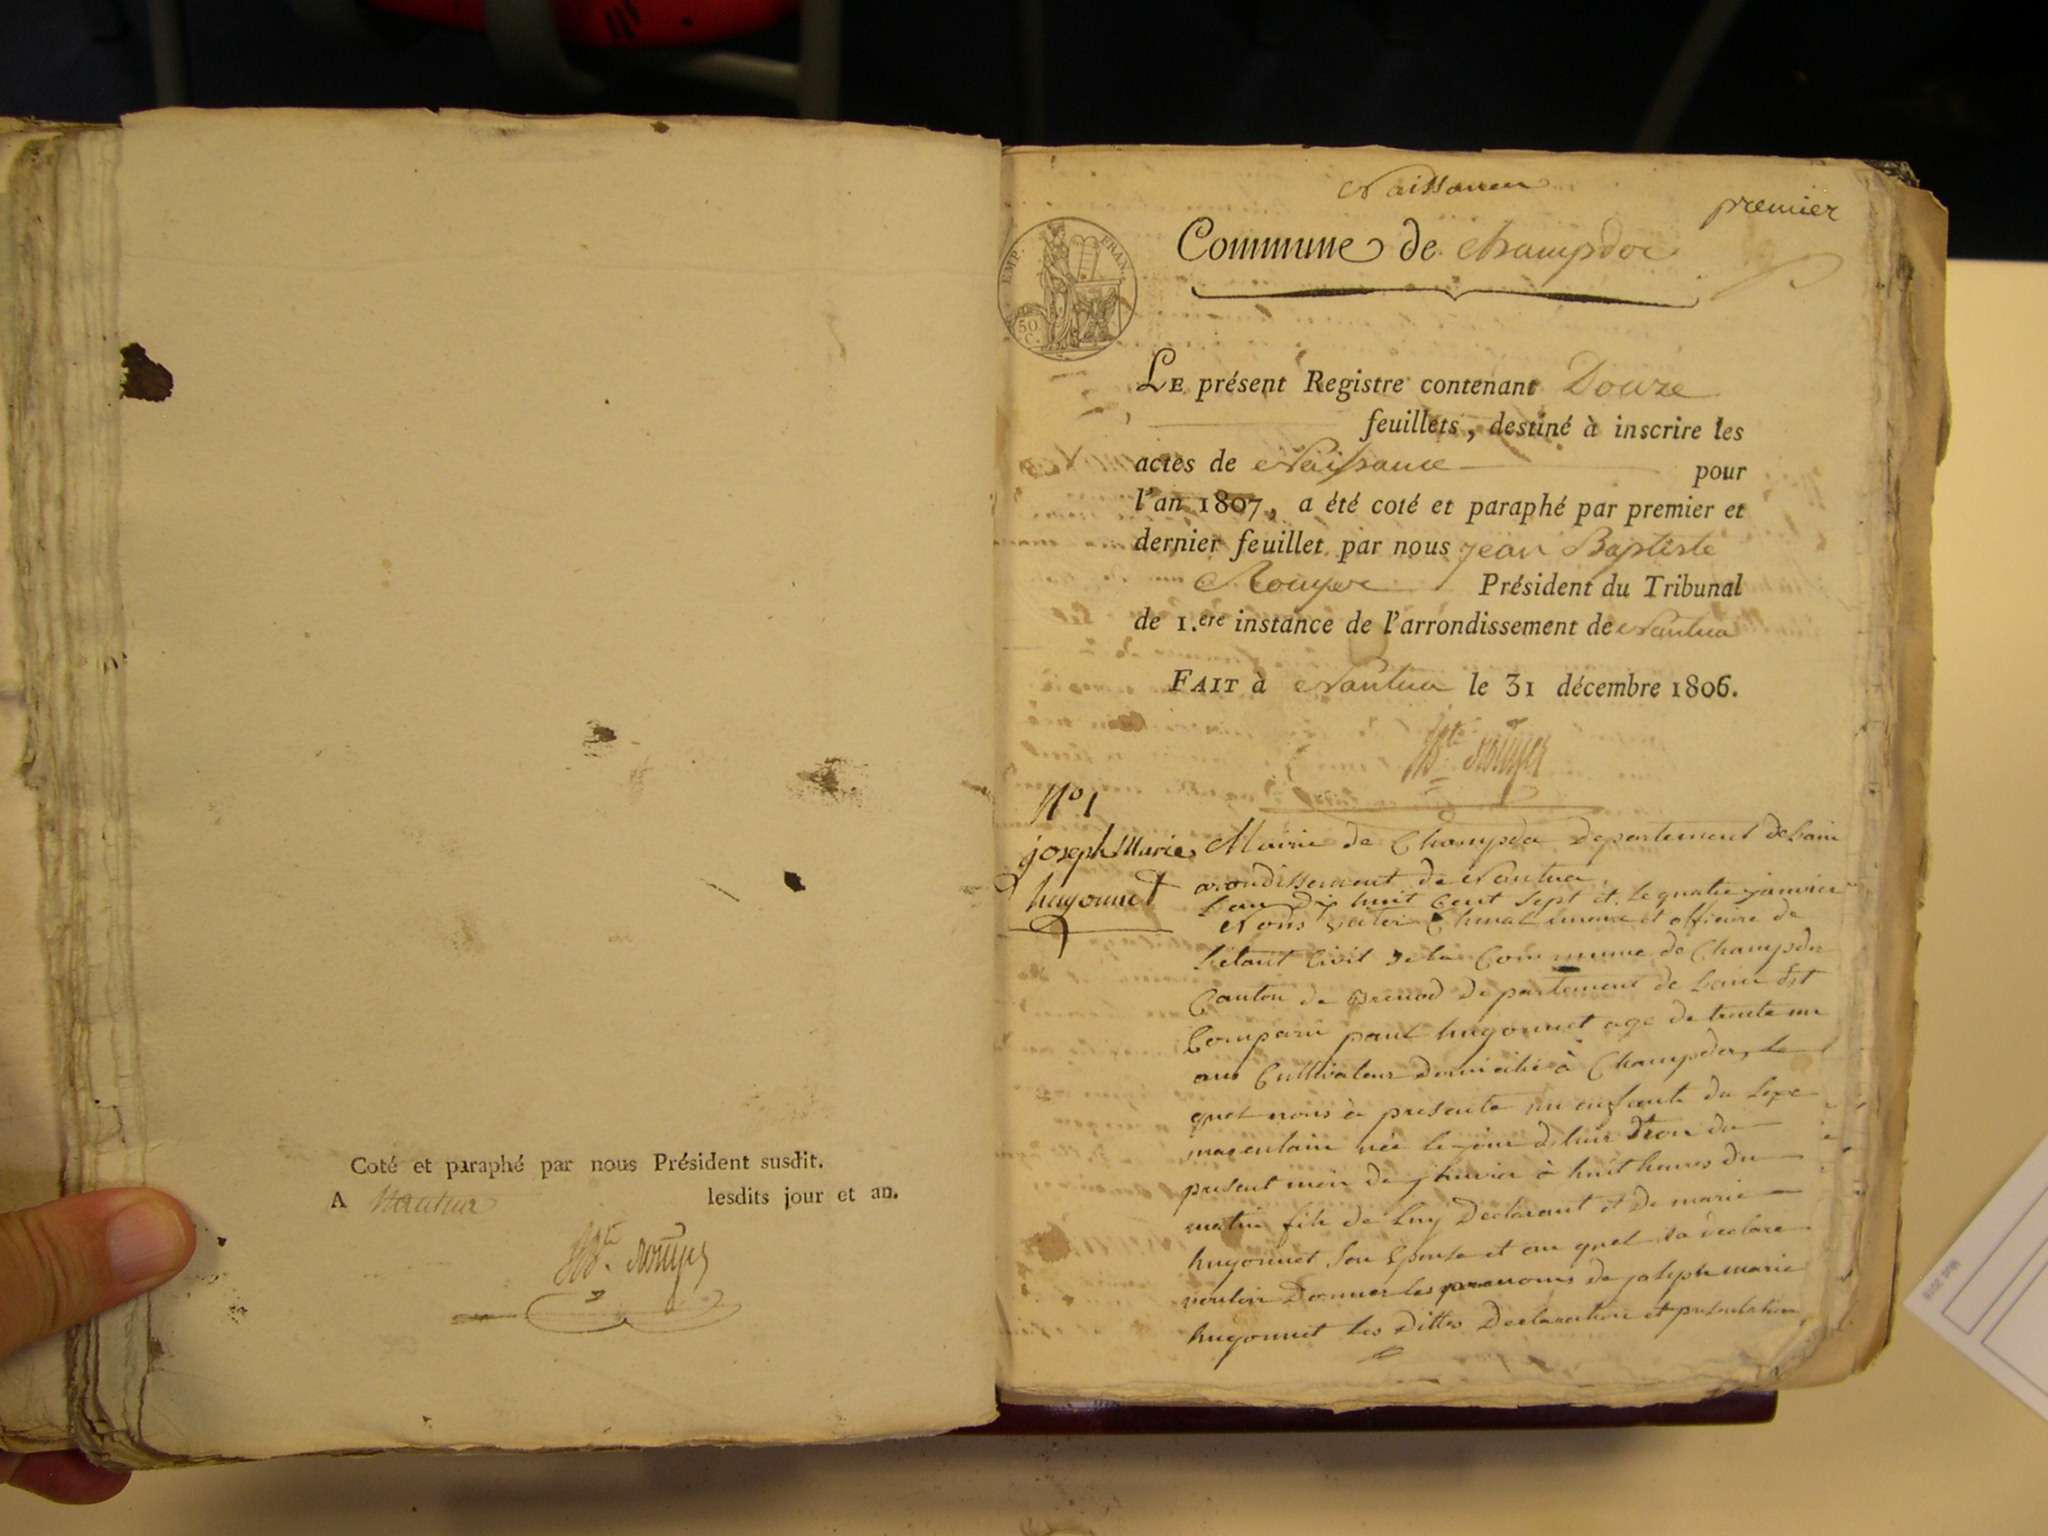 Coté et paraphé par nous Président susdit.
A Nantua lesdits jour et an.
Bte. rouyer
Naissances
premier
Commune de Champdor
EMP. FRAN.
50 C.
LE présent Registre contenant Douze
feuillets, destiné à inscrire les
actes de Naissance pour
l'an 1807, a été coté et paraphé par premier et
dernier feuillet par nous jean Baptiste
Rouyer Président du Tribunal
de 1.ere instance de l'arrondissement de Nantua
FAIT à Nantua le 31 décembre 1806.
Bte. rouyer
No 1
joseph Marie
hugonnet
Mairie de Champdor Departement de Lain
arondissement de Nantua
Lan Dix huit Cent Sept et le quatre janvier
Nous maire et officier de
Letaut Civil de la Commune de Champdor
Canton de Brenod Departement de Lain Est
Comparu paul hugonnet age de trente un
ans Cultivateur domicilié à Champdor, le
quel nous à presenté un enfant du sexe
masculain née le jour du
present mois de janvier à huit heures du
matin fils de Luy Declarant et De marie
hugonnet Son Epouse et au quel il a declare
vouloir Donner les prenoms de joseph marie
hugonnet les dittes Declaration et presentation